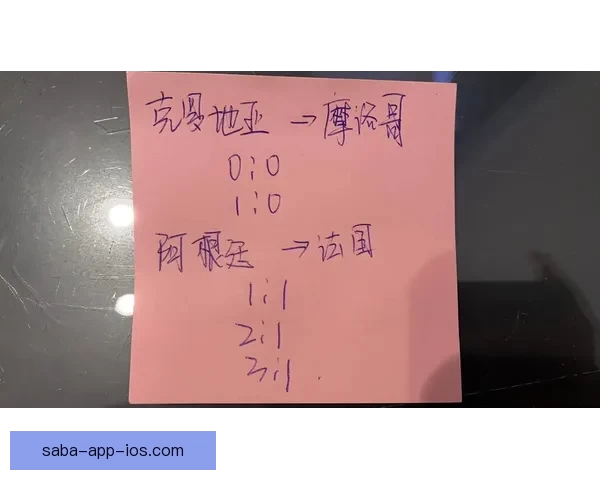 克罗地亚 →摩洛哥
0:0
1:0
阿根廷 →法国
1:1
2:1
3:1.
saba-app-ios.com